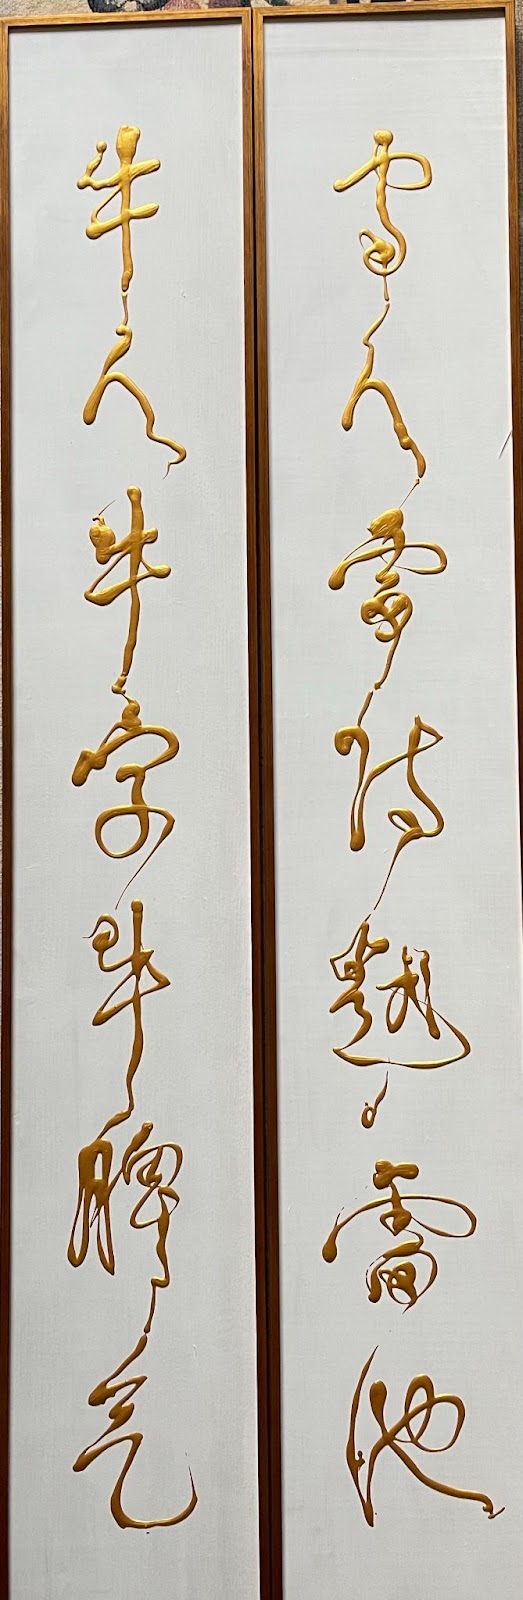 雷人雷诗越雷池
牛人牛字牛脾气